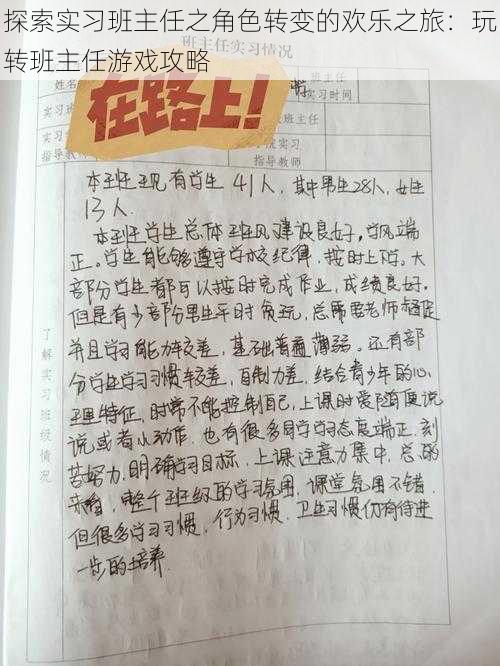 探索实习班主任之角色转变的欢乐之旅：玩
转班主任游戏攻略
班主任实习情况
姓名
班主任
实习时间
实习班
实习
指导教师
指导教
在路上!
了解实习班级情况
本班现有学生41人，其中男生28人，女生
13人.
本班学生总体班风建设良好，学风端
正。学生能够遵守学校纪律，按时上学。大
部分学生都可以按时完成作业，成绩良好。
但是有少部分男生平时贪玩，总需要老师督促
并且学习能力较差，基础普遍薄弱。还有部
分学生学习习惯较差，自制力差，结合青少年的心
理特征，时常不能控制自己，上课时爱随便说
说或者小动作，也有很多同学学习态度端正，刻
苦努力，明确学习目标，上课注意力集中，总的
来看，整个班级的学习氛围，课堂氛围不错，
但很多学习习惯，行为习惯，卫生习惯仍有待进
一步的培养.